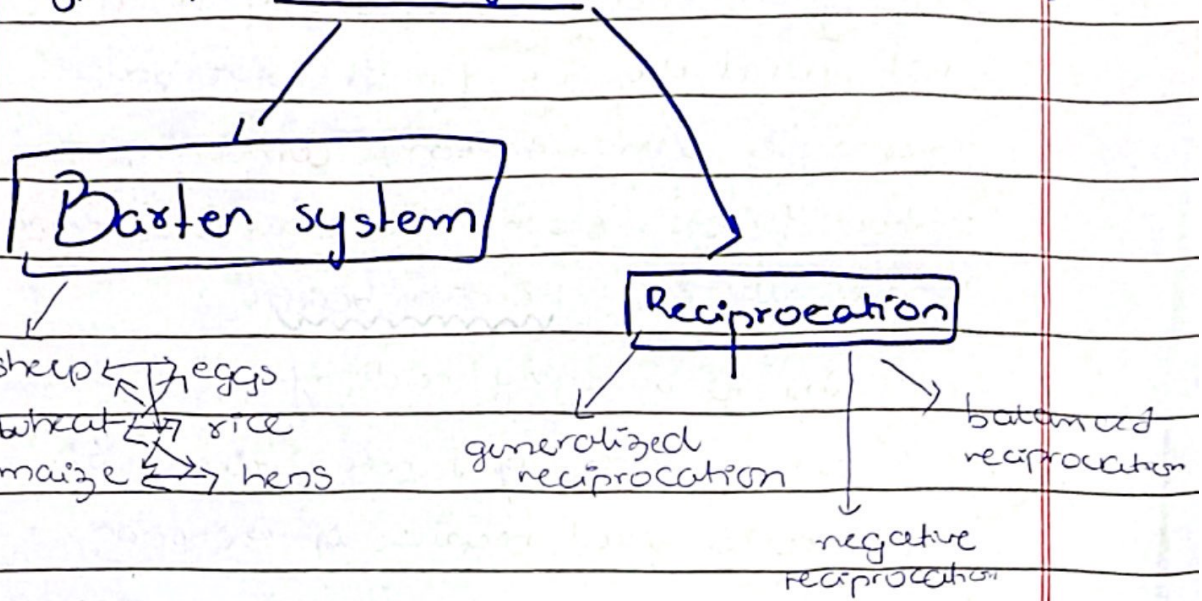 Barter system
Reciprocation
sheep eggs
wheat rice
maize hens
generalized
reciprocation
balanced
reciprocation
negative
reciprocation